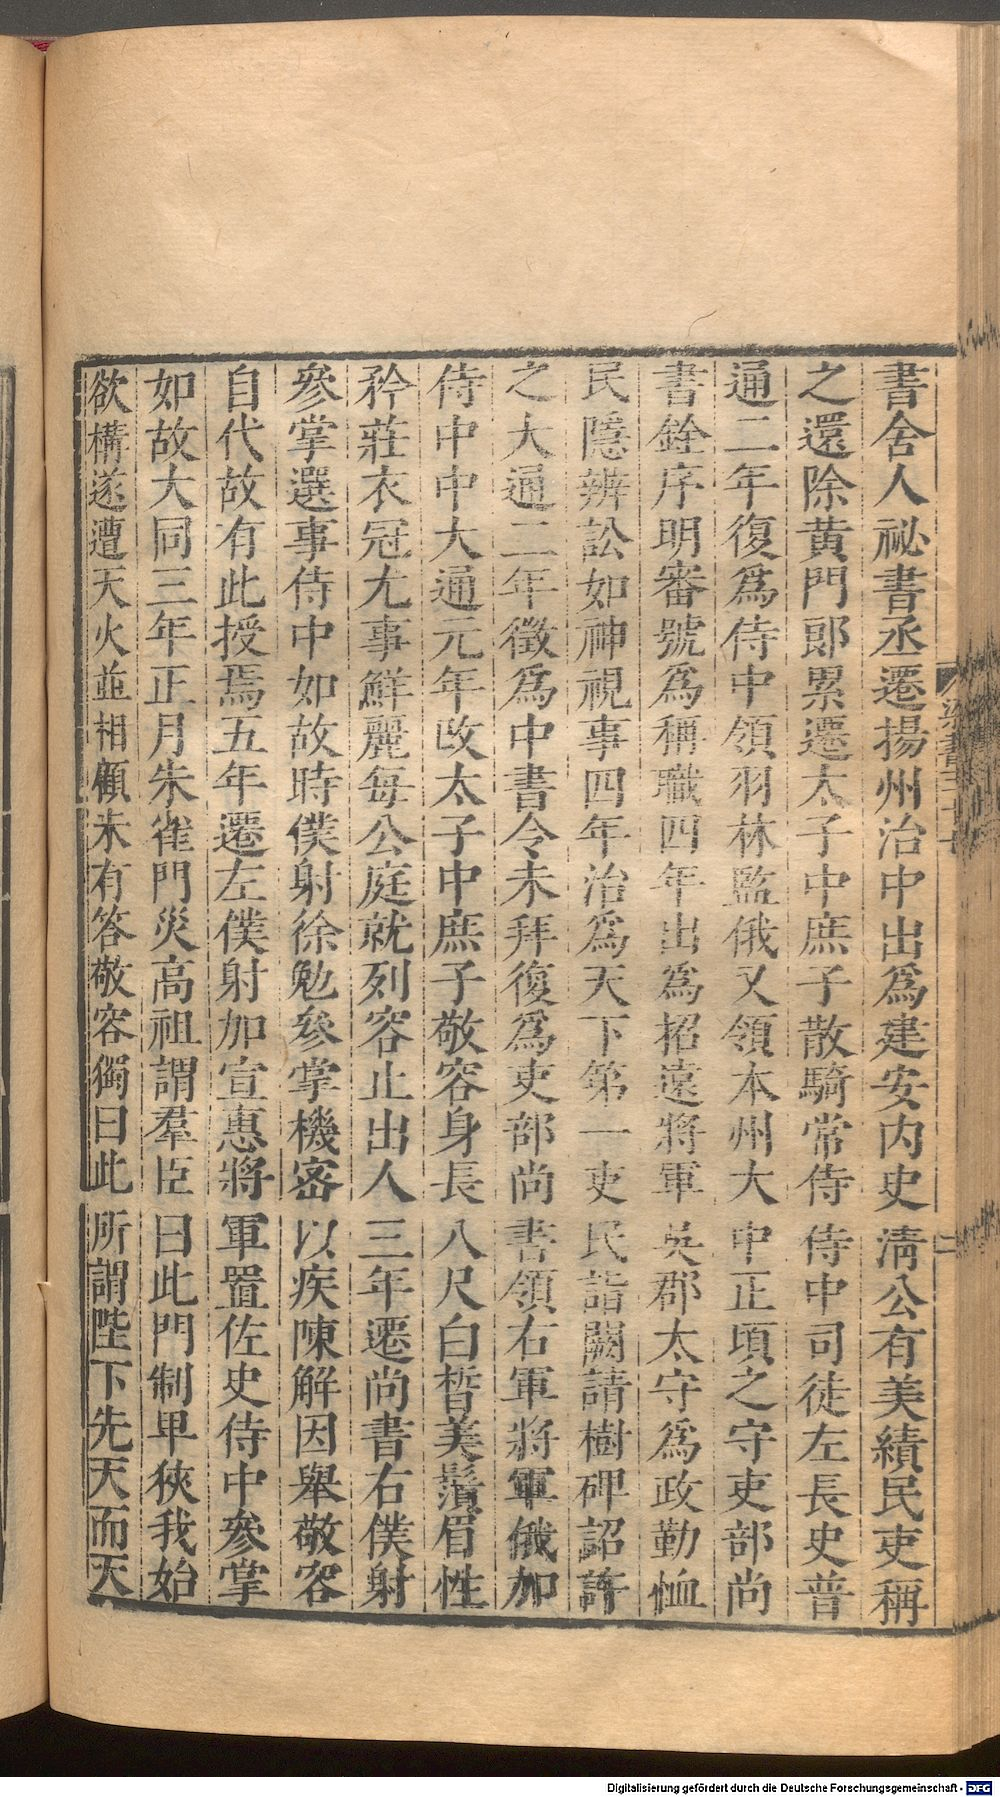 書舍人祕書丞遷揚州治中出爲建安內史淸公有美績民吏稱
之還除黄門郎累遷太子中庶子散騎常侍侍中司徒左長史普
通二年復爲侍中領羽林監俄又領本州大中正頃之守吏部尚
書銓序明審號爲稱職四年出爲招遠將軍吳郡太守爲政勤恤
民隱辨訟如神視事四年治爲天下第一吏民詣闕請樹碑詔許
之大通二年徵爲中書令未拜復爲吏部尚書領右軍將軍俄加
侍中中大通元年改太子中庶子敬容身長八尺白晳美鬚眉性
矜莊衣冠尤事鮮麗每公庭就列容止出人三年遷尚書右僕射
參掌選事侍中如故時僕射徐勉參掌機密以疾陳解因舉敬容
自代故有此授焉五年遷左僕射加宣惠將軍置佐史侍中參掌
如故大同三年正月朱雀門災高祖謂羣臣曰此門制卑狹我始
欲構遂遭天火並相顧未有答敬容獨曰此所謂陛下先天而天
Digitalisierung gefördert durch die Deutsche Forschungsgemeinschaft - DFG